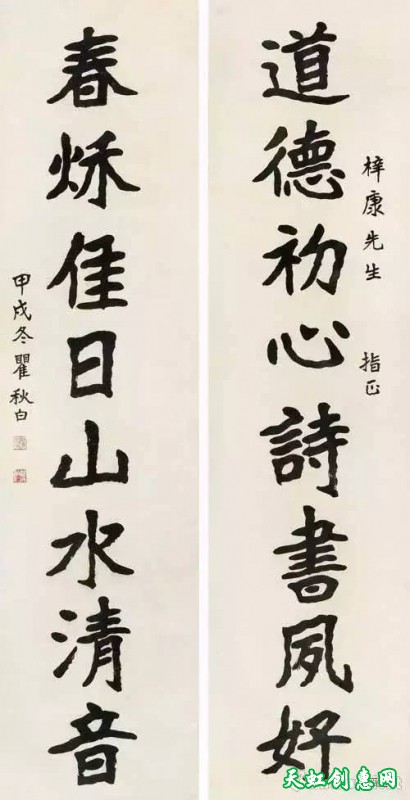 道德初心詩書夙好
梓康先生 指正
春烁佳日山水清音
甲戌冬瞿秋白
天虹创惠网